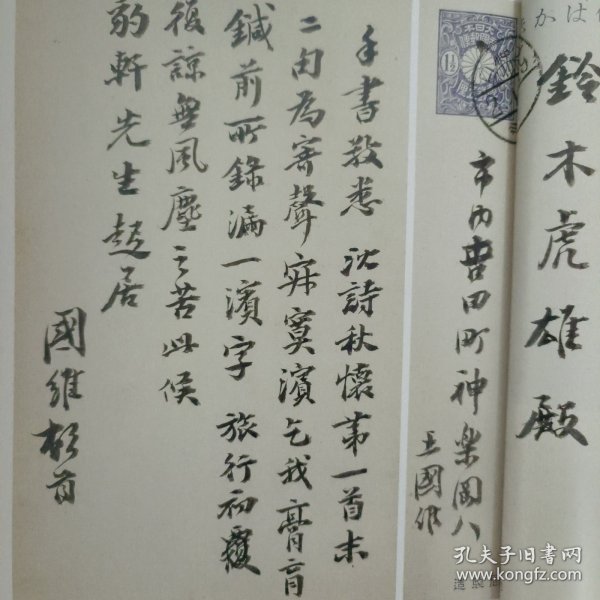 鈴木虎雄殿
市内吉田町神楽岡八
王國維
手書敬悉 沈詩秋懷第一首末
二句為寒聲寂寞濱乞我膏肓
鍼前所錄漏一濱字 旅行初
諒無風塵之苦此候
豹軒先生起居
國維頓首
1½
孔夫子旧书网
www.kongfz.com